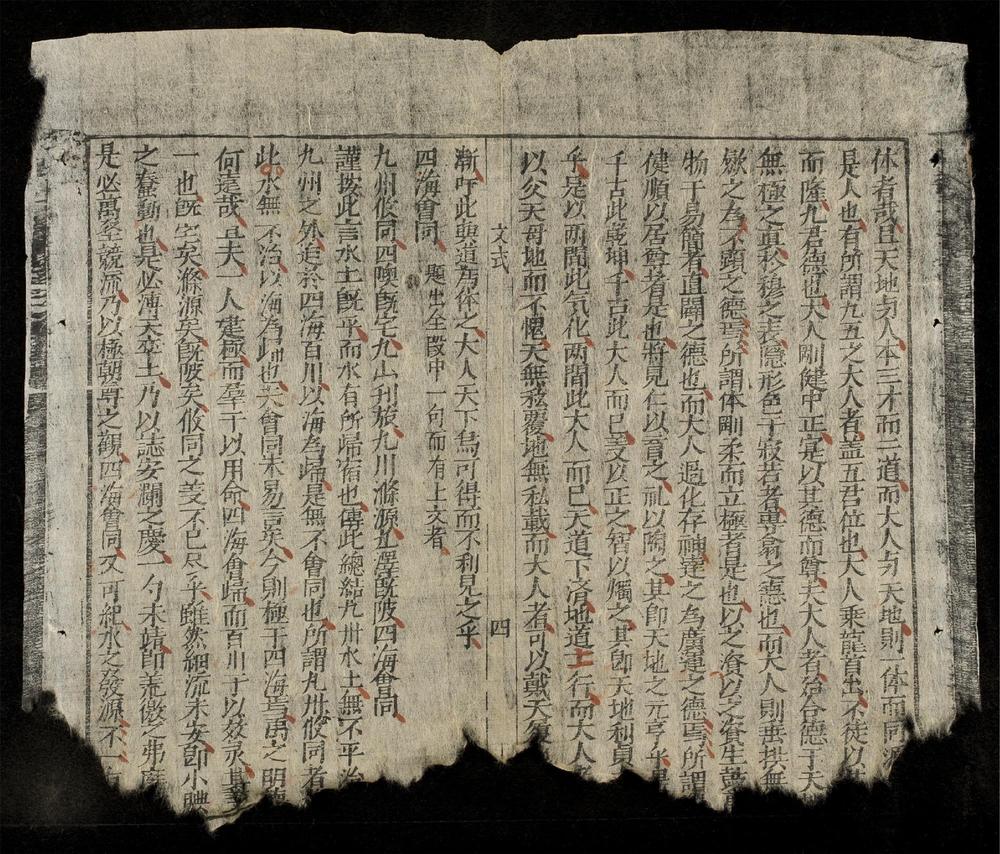 体者哉且天地与人本三才而二道而大人与天地則一体而同
是人也有所謂九五之大人者盖五君位也大人乘龍首出不徒以
而隆九君德也大人剛健中正寔以其德而尊夫大人者始合德于天
無極之真於穆之表隱形色于寂若者專翕之德也而大人則垂拱無
歛之為不顕之德焉所謂体剛柔而立極者是也以之滋以之養生
物于易簡者直闢之德也而大人過化存神達之為廣運之德焉所謂
健順以居尊者是也將見仁以育之礼以陶之其即天地之元亨乎
千古此乾坤千古此大人而已義以正之智以燭之其即天地利貞
乎是以两間此気化两間此大人而已天道下濟地道上行而大人
以父天母地而不愧天無私覆地無私載而大人者可以戴天
文式
四
漸吁此典道為体之大人天下烏可得而不利見之乎
四海會同 題出全段中一句而有上文者
九州攸同四隩既宅九山刊旅九川滌源九澤既陂四海會同
謹按此言水土既平而水有所歸宿也傳此總結九州水土無不平治
九州之外迨於四海百川以海為歸是無不會同也所謂九州攸同者
此水無不治以海為地也夫會同未易言矣今則極于四海焉禹之明德
何遠哉且夫一人建極而羣于以用命四海會歸而百川于以效灵
一也既宅矣滌源矣既陂矣攸同之美不已尽乎雖然細流未安即小
之蠢動也是必薄天率土乃以誌安瀾之慶一勺未靖即荒徼之弗
是必萬壑競流乃以極朝宗之觀四海會同又可紀水之發源不一